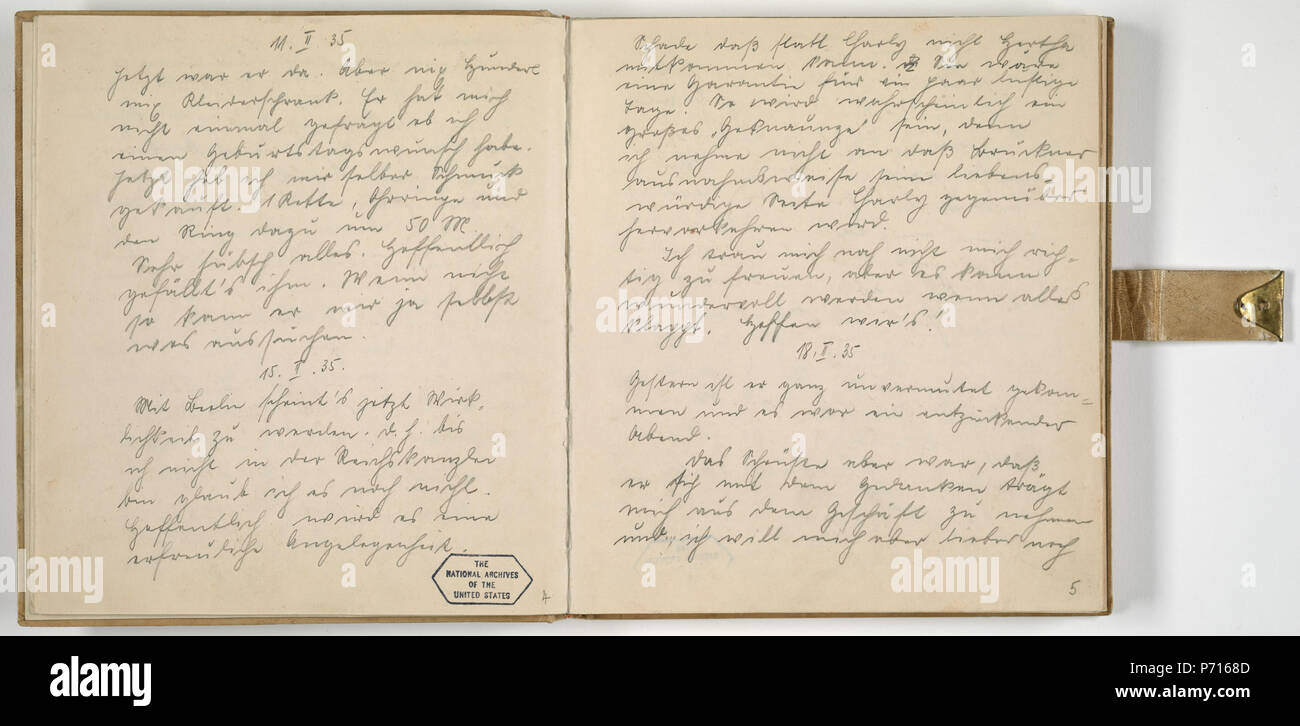 11. II 35
Jetzt war er da. Aber nix Hunderl
nix Kleiderschrank. Er hat mich
nicht einmal gefragt ob ich
einen Geburtstagswunsch habe.
Jetzt hab ich mir selber Schmuck
gekauft. 1 Kette, Ohrringe und
den Ring dazu um 50 M.
Sehr hübsch alles. Hoffentlich
gefällt's ihm. Wenn nicht
so kann er mir ja selbst
was aussuchen.
15. II. 35.
Mit Berlin scheint's jetzt Wirk-
lichkeit zu werden. d. h. bis
ich nicht in der Reichskanzlei
bin glaub ich es noch nicht.
Hoffentlich wird es eine
erfreuliche Angelegenheit.
THE
NATIONAL ARCHIVES
OF THE
UNITED STATES
4
Schade daß statt Charly nicht Hertha
mitkommen kann. Sie wäre
eine Garantie für ein paar lustige
Tage. So wird wahrscheinlich ein
großes „Geknaunze“ sein, denn
ich nehme nicht an daß Bruckner
ausnahmsweise seine liebens-
würdige Seite Charly gegenüber
hervorkehren wird.
Ich trau mich noch nicht mich rich-
tig zu freuen, aber es kann
wundervoll werden wenn alles
klappt. Hoffen wir's!
18. II. 35
Gestern ist er ganz unvermutet gekom-
men und es war ein entzückender
Abend.
Das Schönste aber war, daß
er sich mit dem Gedanken trägt
mich aus dem Geschäft zu nehmen
und ich will mich aber lieber noch
5
alamy
alamy
Image ID: P7168D
www.alamy.com